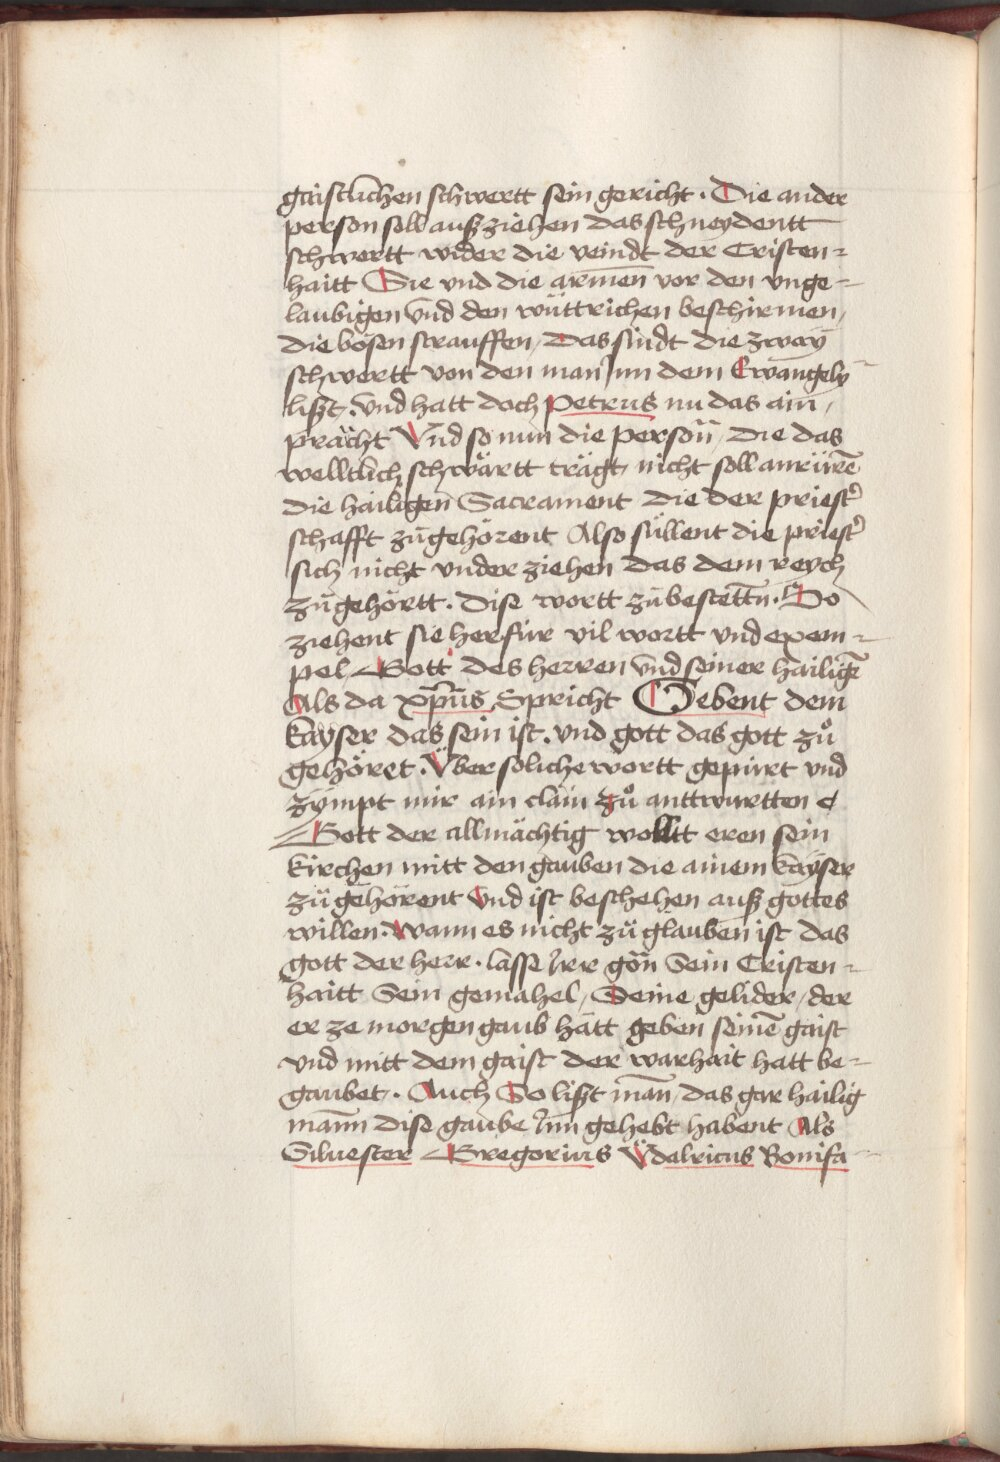 gaistlichen schwertt sein gericht . Die ander
person soll außziehen das schneydentt
schwertt wider die veindt der Cristen=
haitt Sie vnd die armen vor den vnge=
laubigen vnd den wüttrichen beschirmen /
die bösen strauffen / Das sindt die zway
schwertt von den man Inn dem Ewangely
lißt . vnd hatt doch Petrus nu das ain /
prächt Vnd so nun die person / die das
welltlich schwärtt trägt / nicht soll anrürē
die hailigen Sacrament die der priest̓
schafft zůgehörent Also süllent die priest̓
sich nicht vnder ziehen das dem reych
zůgehörtt . dise wortt zůbestettn̄ . So
ziehent sie herfür vil wortt vnd exem=
pel Gott des herren vnd seiner hailigē
Als da xp̄us Spricht Gebent dem
kayser das sein ist . vnd gott das gott zů
gehöret . Über soliche wortt gepürt vnd
zÿmpt mir ain clain zů anttwurtten
Gott der allmächtig wolltt eren sein
kirchen mitt den gauben die ainem kayser
zůgehörent vnd ist beschehen auß gottes
willen . wann es nicht zů glauben ist das
gott der herr . lasse Irr gön Sein Cristen=
haitt Sein gemahel / Seine gelider / der
er ze morgengaub hatt geben seinē gaist
vnd mitt dem gaist der warhait hatt be=
gaubet . Auch So lißt man̄ / das gar hailig
mann dise gaube Inn gehebt habent Als
Siluester Gregorius Vdalricus Bonifa=